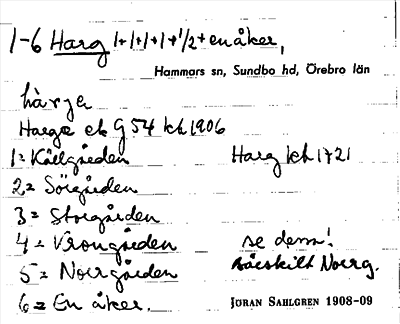 1-6 Harg 1+1+1+1+1/2+ en åker,
Hammars sn, Sundbo hd, Örebro län
hàrja
Harge ek G 54 kh 1906
1= Källgården Harg kh 1721
2= Sörgården
3= Storgården
4= Vrongården se denna!
5= Norrgården särskilt Norrg.
6= En åker. JÖRAN SAHLGREN 1908-09